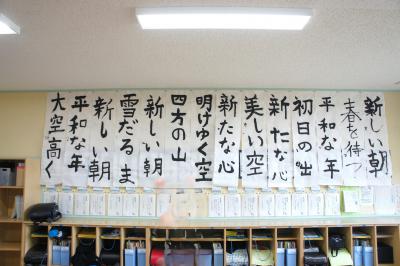 新しい朝
春を待つ
平和な年
初日の出
新たな心
美しい空
新たな心
明けゆく空
四方の山
新しい朝
雪だるま
新しい朝
平和な年
大空高く